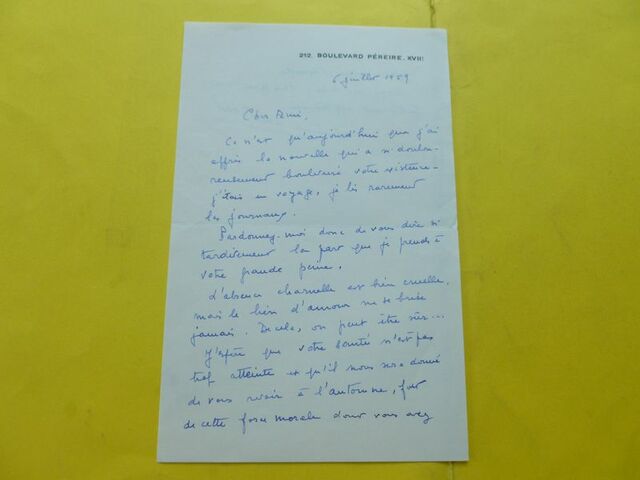 212, BOULEVARD PÉREIRE. XVII!
6 juillet 1959
Cher Ami,
Ce n'est qu'aujourd'hui que j'ai
appris la nouvelle qui a si doulou-
reusement bouleversé votre existence -
j'étais en voyage, je lis rarement
les journaux.
Pardonnez-moi donc de vous dire si
tardivement la part que je prends à
votre grande peine.
L'absence charnelle est bien cruelle,
mais le lien d'amour ne se brise
jamais. De cela, on peut être sûr...
J'espère que votre santé n'est pas
trop atteinte et qu'il nous sera donné
de vous revoir à l'automne, fort
de cette force morale dont vous avez